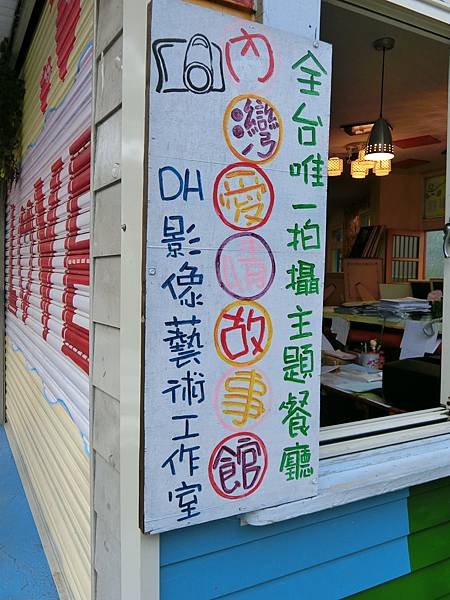 全台唯一拍攝主題餐廳
內灣愛情故事館
DH影像藝術工作室